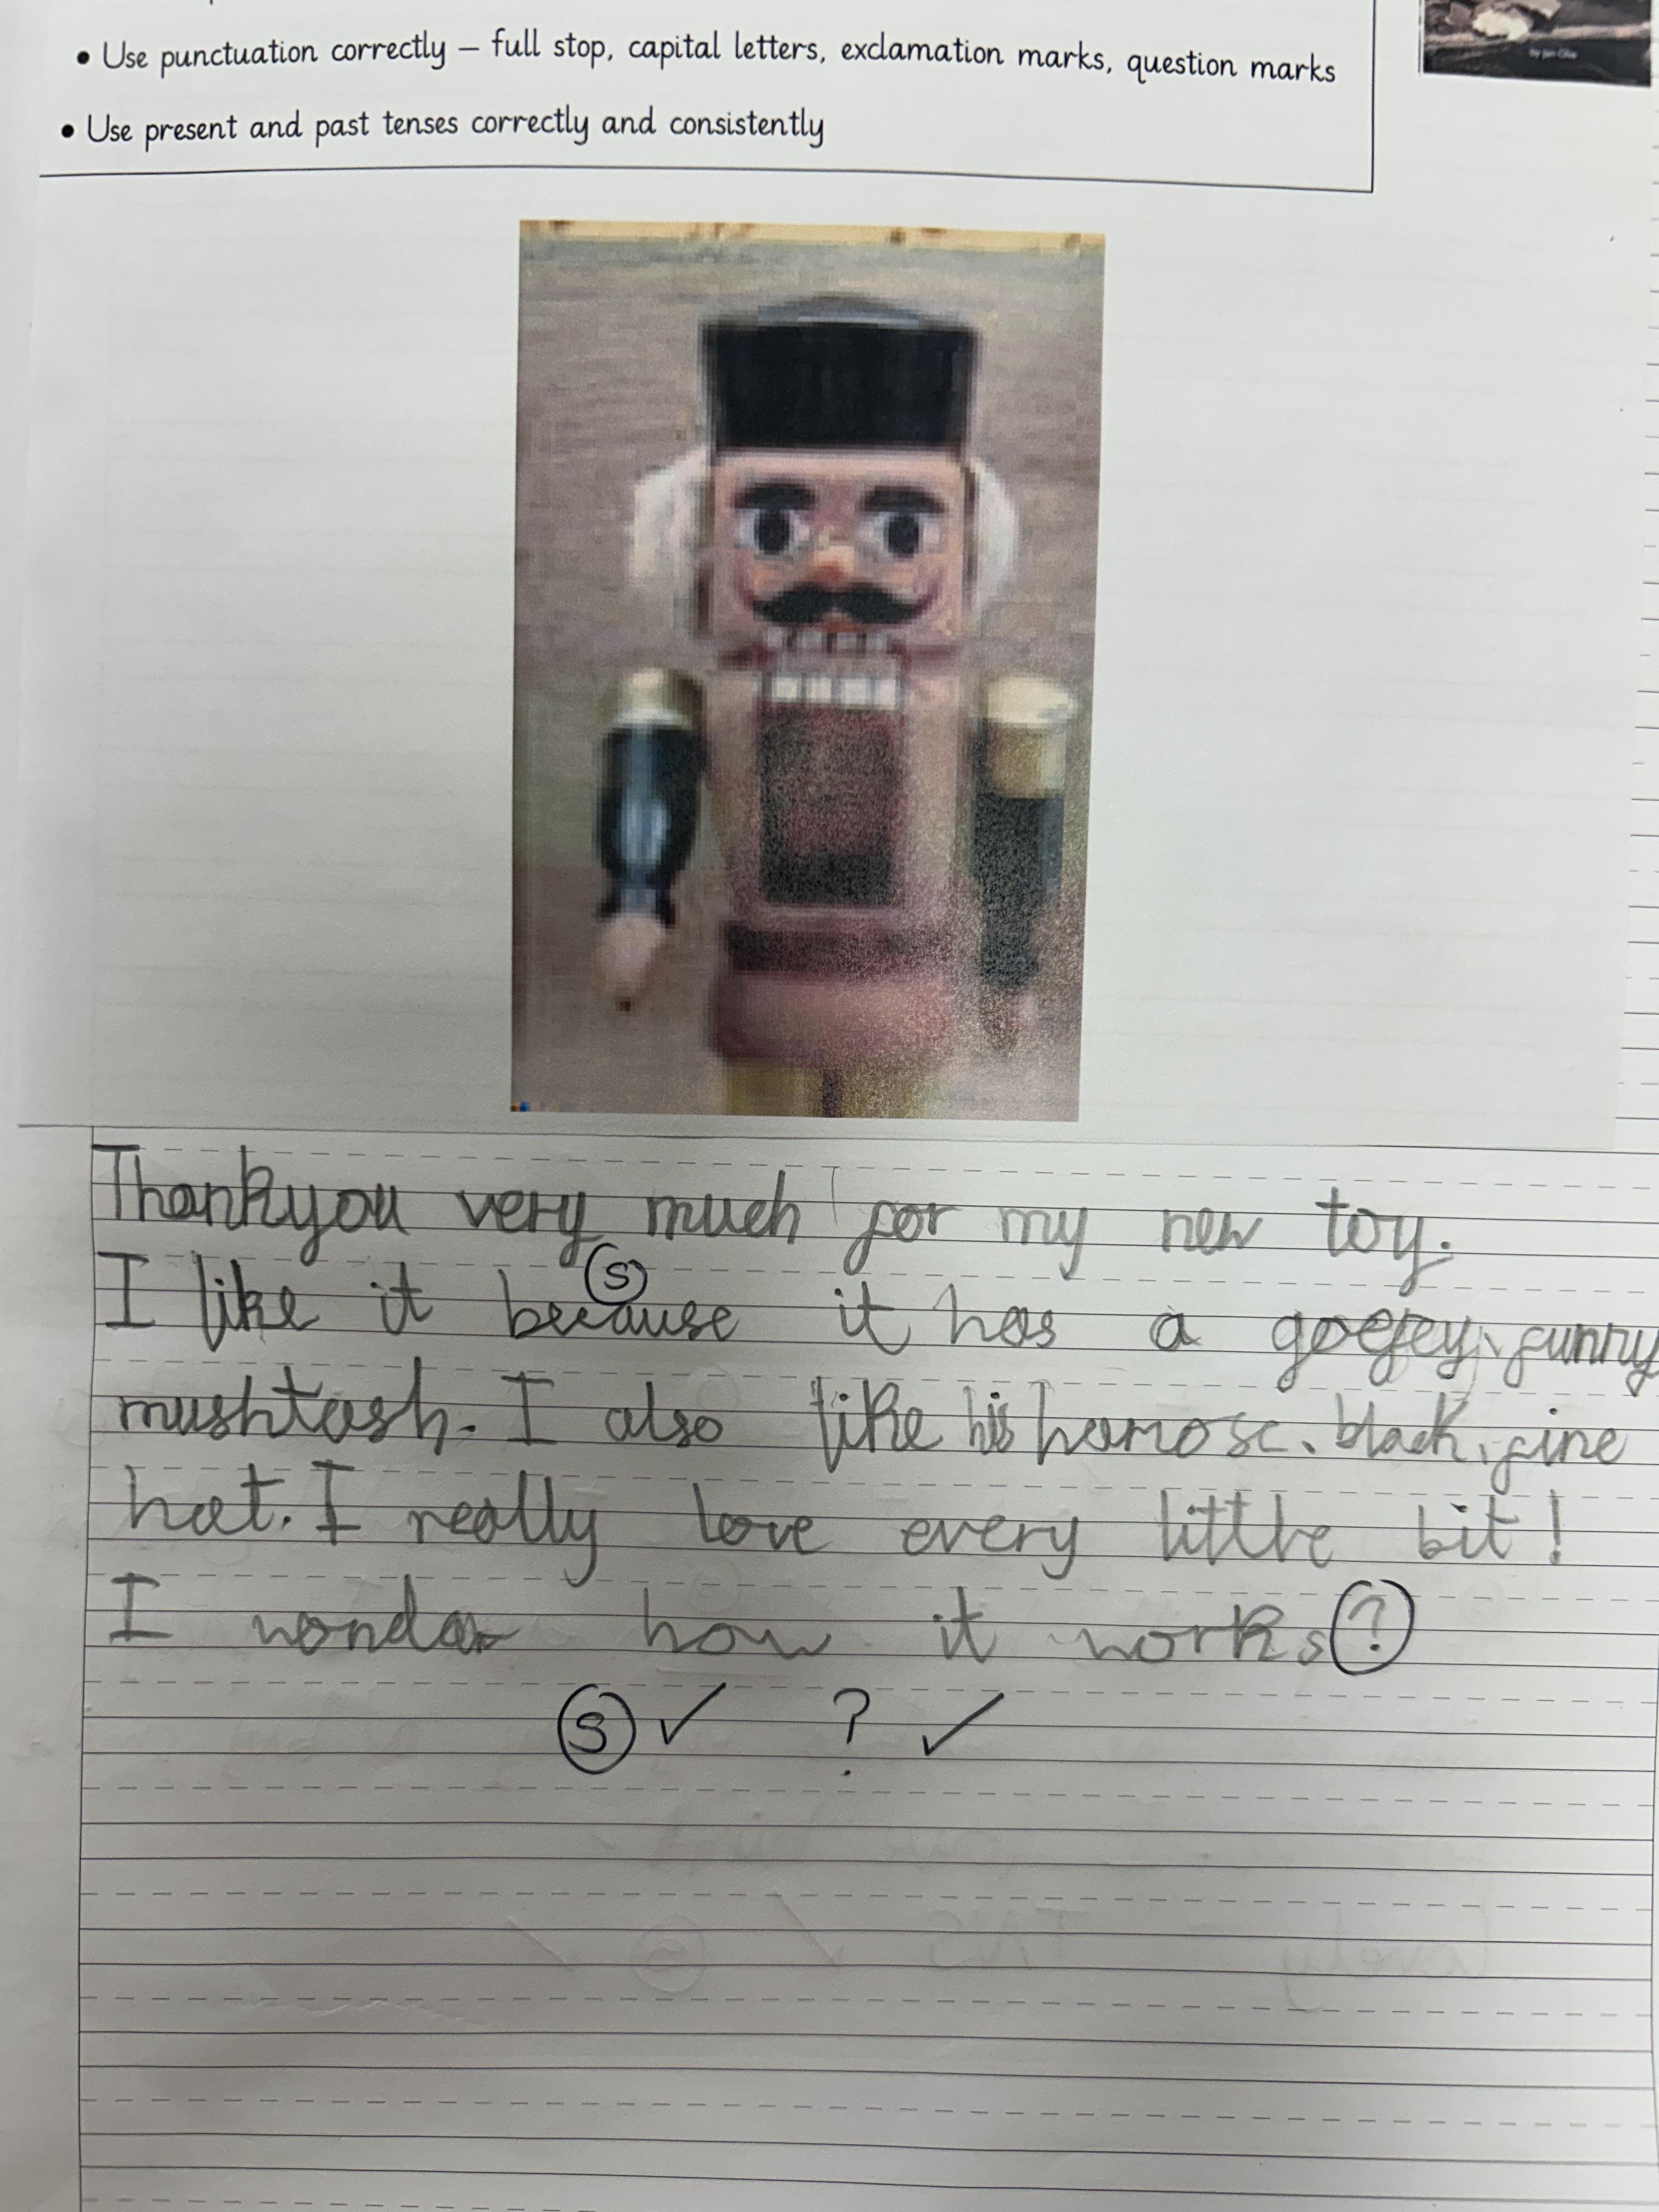 • Use punctuation correctly – full stop, capital letters, exclamation marks, question marks
• Use present and past tenses correctly and consistently
by Jan Oke
Thankyou very much for my new toy.
I like it because it has a goefey, funny
(S)
mushtash. I also like his hanosc, black, fine
hat. I really love every little bit!
I wondar how it works?
(S) ✓ ? ✓